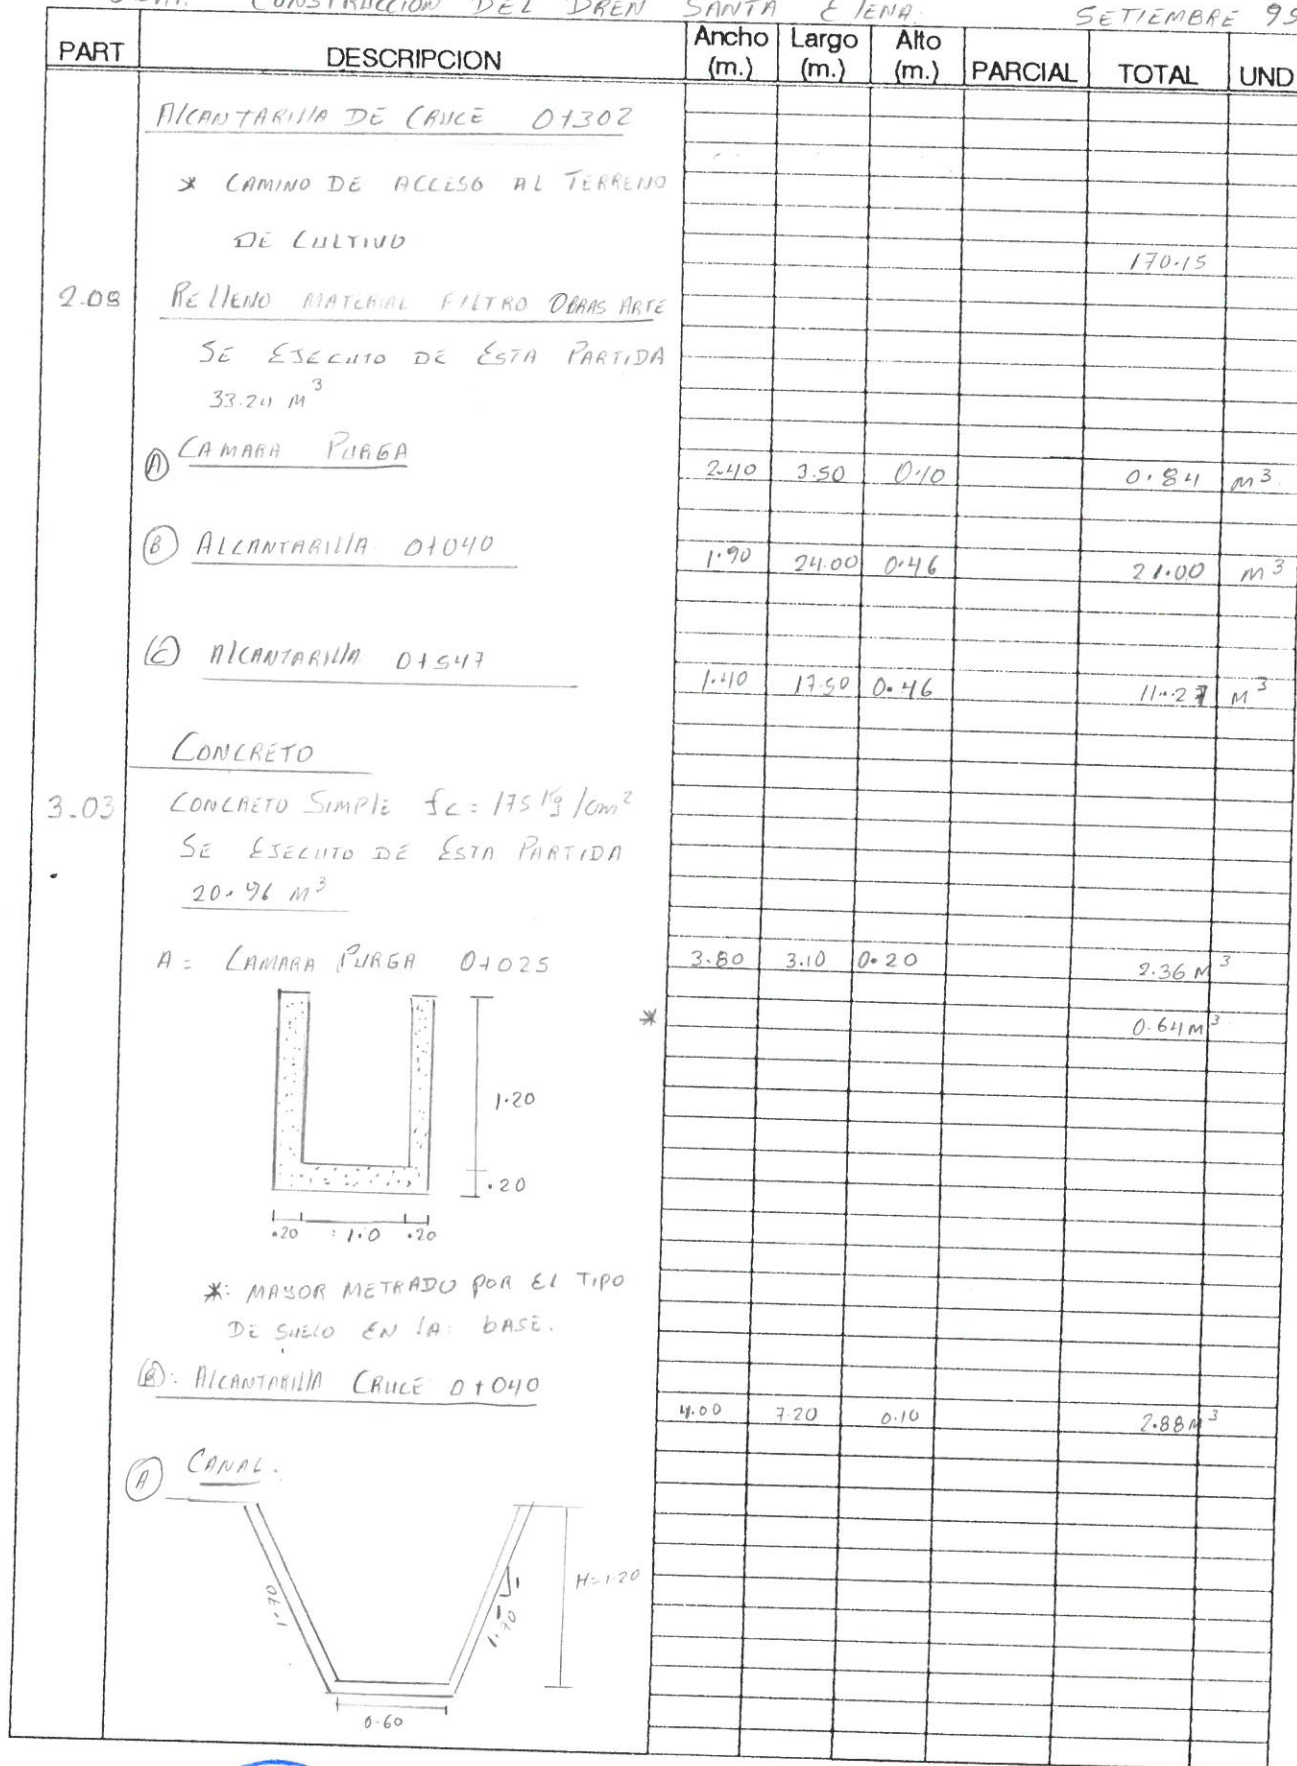 CONSTRUCCION DEL DREN SANTA ElENA. SETIEMBRE 95
PART DESCRIPCION Ancho (m.) Largo (m.) Alto (m.) PARCIAL TOTAL UND
AlCANTARIllA DE CRUCE 0+302
* CAMINO DE ACCESO AL TERRENO
DE CULTIVO
170.15
2.08 RELLENO MATERIAL FILTRO OBRAS ARTE
SE EJECUTO DE ESTA PARTIDA
33.24 M³
Ⓐ CAMARA PURGA
2.40 3.50 0.10 0.84 m³
Ⓑ ALCANTARIllA 0+040
1.90 24.00 0.46 21.00 m³
Ⓒ AlCANTARIllA 0+547
1.40 17.50 0.46 11.27 M³
CONCRETO
3.03 CONCRETO SIMPlE fc = 175 Kg/cm²
SE EJECUTO DE ESTA PARTIDA
20.96 M³
A = CAMARA PURGA 0+025 3.80 3.10 0.20 2.36 M³
* 0.64 M³
1.20
.20
.20 1.0 .20
*: MAYOR METRADO POR EL TIPO
DE SUElO EN lA BASE.
Ⓑ: AlCANTARIllA CRUCE 0+040
4.00 7.20 0.10 2.88 M³
Ⓐ CANAL.
1.70 1.70 1 1 H=1.20
0.60